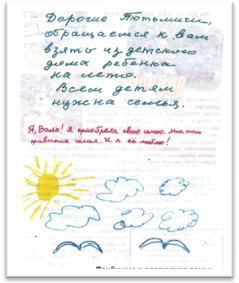 Дорогие Потьмичи,
обращаемся к вам
взять из детского
дома ребенка
на лето.
Всем детям
нужна семья.
Я, Валя! Я приобрела свою семью. Мне очень
нравится семья. И я её люблю!